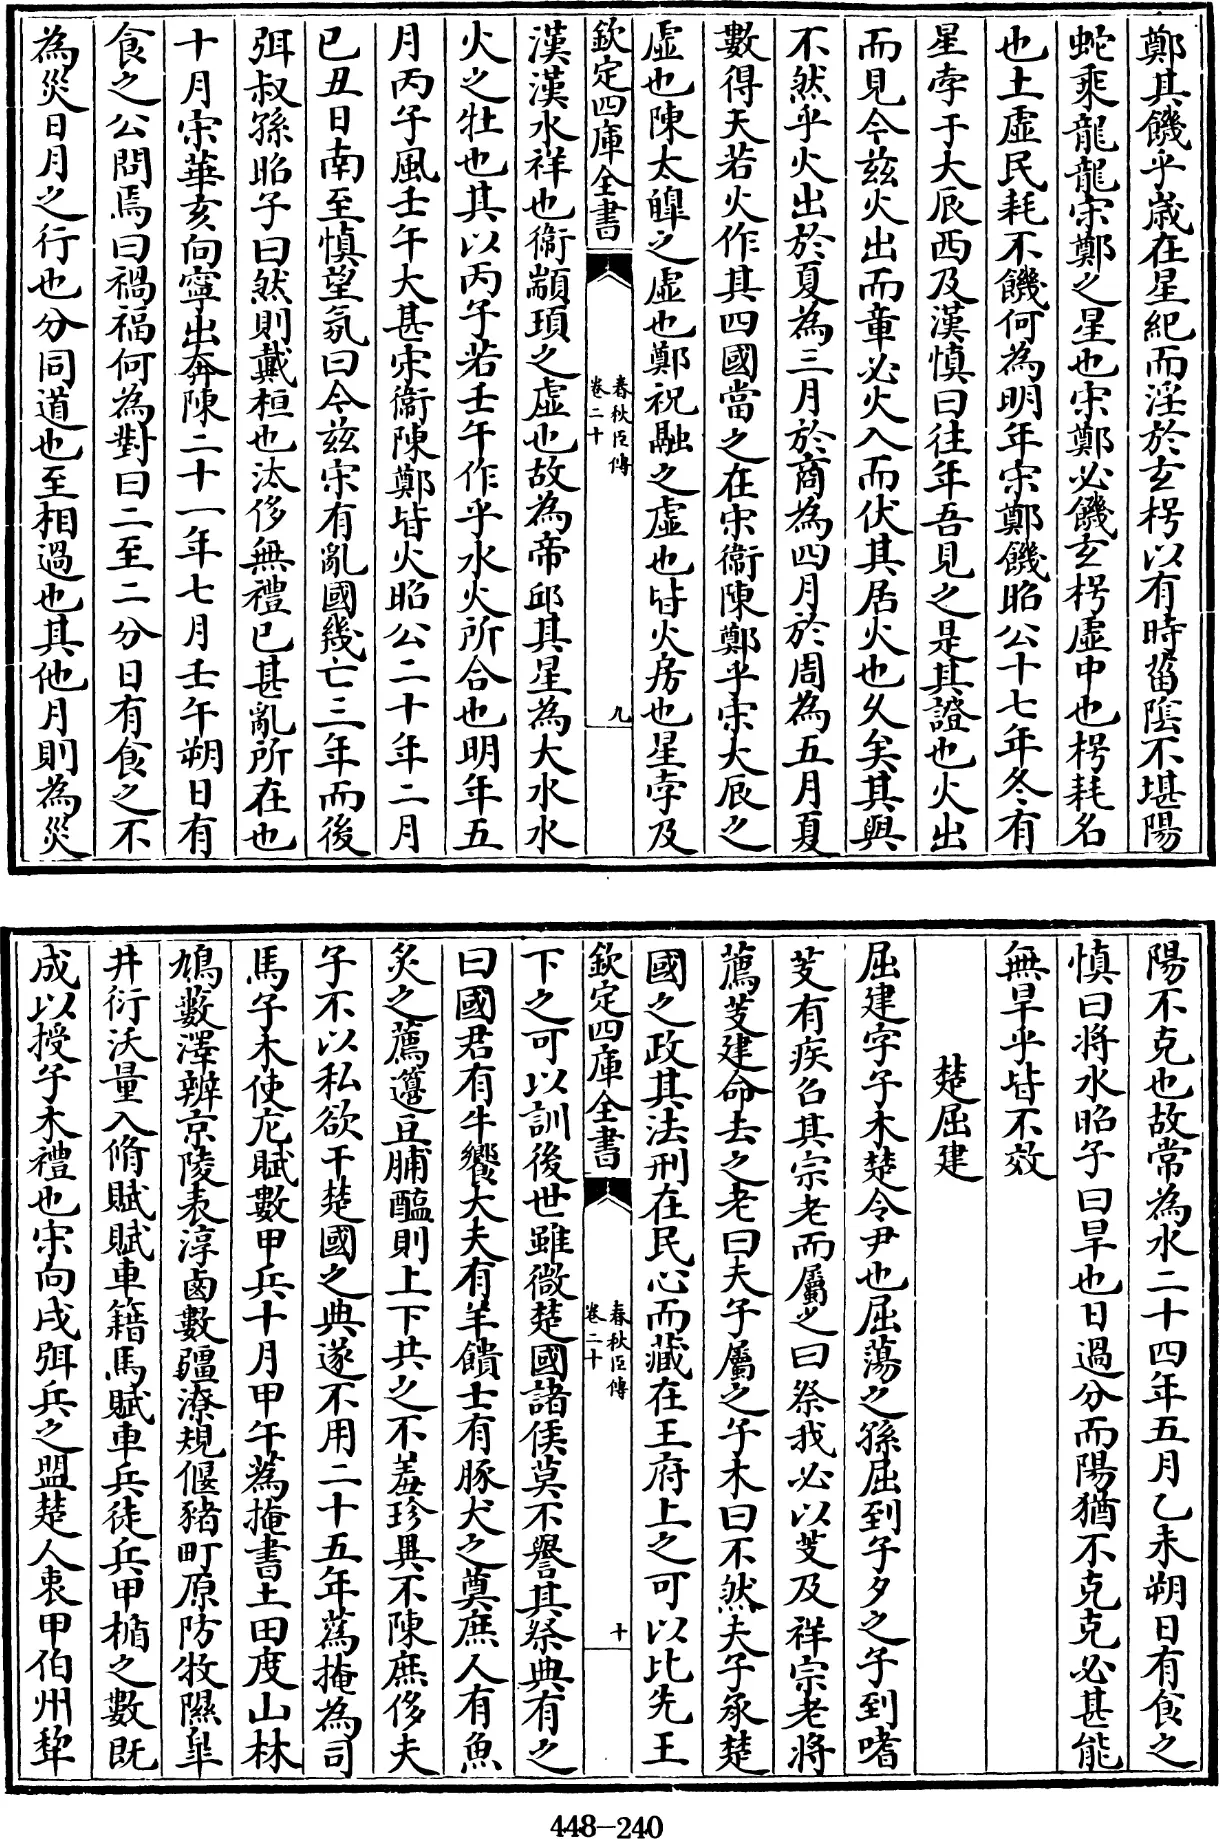 鄭其饑乎歲在星紀而淫於玄枵以有時菑陰不堪陽
蛇乘龍龍宋鄭之星也宋鄭必饑玄枵虛中也枵耗名
也土虛民耗不饑何為明年宋鄭饑昭公十七年冬有
星孛于大辰西及漢慎曰往年吾見之是其證也火出
而見今兹火出而章必火入而伏其居火也乆矣其與
不然乎火出於夏為三月於商為四月於周為五月夏
數得天若火作其四國當之在宋衞陳鄭乎宋大辰之
虛也陳太皥之虛也鄭祝融之虛也皆火房也星孛及
欽定四庫全書
春秋臣傳
卷二十
九
漢漢水祥也衞顓頊之虛也故為帝邱其星為大水水
火之牡也其以丙子若壬午作乎水火所合也明年五
月丙子風壬午大甚宋衞陳鄭皆火昭公二十年二月
已丑日南至慎望氛曰今兹宋有亂國幾亡三年而後
弭叔孫昭子曰然則戴桓也汰侈無禮已甚亂所在也
十月宋華亥向寧出奔陳二十一年七月壬午朔日有
食之公問焉曰禍福何為對曰二至二分日有食之不
為災日月之行也分同道也至相過也其他月則為災
陽不克也故常為水二十四年五月乙未朔日有食之
慎曰將水昭子曰旱也日過分而陽猶不克克必甚能
無旱乎皆不效
楚屈建
屈建字子木楚令尹也屈蕩之孫屈到子夕之子到嗜
芰有疾召其宗老而屬之曰祭我必以芰及祥宗老將
薦芰建命去之老曰夫子屬之子木曰不然夫子承楚
國之政其法刑在民心而藏在王府上之可以比先王
欽定四庫全書
春秋臣傳
卷二十
十
下之可以訓後世雖微楚國諸侯莫不譽其祭典有之
曰國君有牛饗大夫有羊饋士有豚犬之奠庶人有魚
炙之薦籩豆脯醢則上下共之不羞珍異不陳庶侈夫
子不以私欲干楚國之典遂不用二十五年蒍掩為司
馬子木使庀賦數甲兵十月甲午蒍掩書土田度山林
鳩藪澤辨京陵表淳鹵數疆潦規偃豬町原防牧隰臯
井衍沃量入脩賦賦車籍馬賦車兵徒兵甲楯之數既
成以授子木禮也宋向戌弭兵之盟楚人衷甲伯州犂
448-240